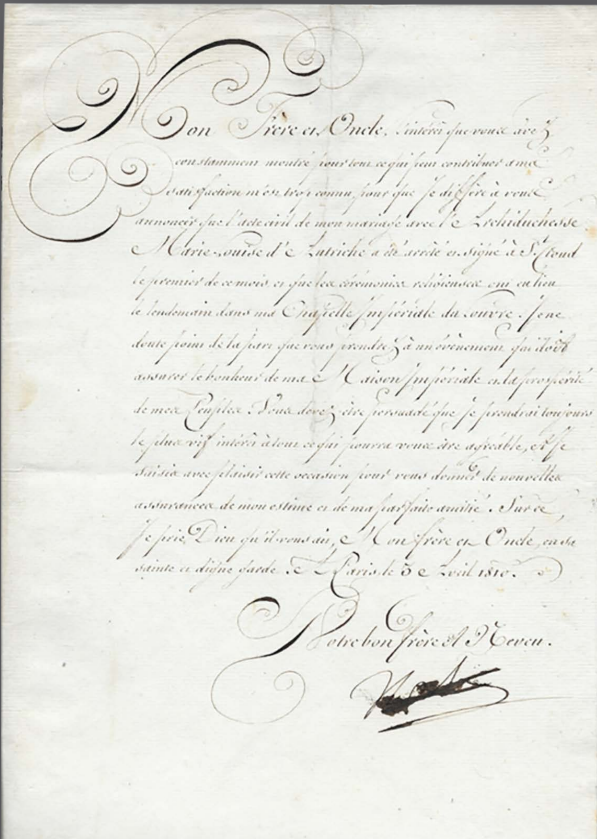 Mon Frère et Oncle. l'intérêt que vous avez
constamment montré pour tout ce qui peut contribuer à ma
satisfaction m'est trop connu pour que je diffère à vous
annoncer que l'acte civil de mon mariage avec l'Archiduchesse
Marie-Louise d'Autriche a été arrêté et signé à St. Cloud
le premier de ce mois et que les cérémonies religieuses ont eu lieu
le lendemain dans ma Chapelle Impériale du Louvre. Je ne
doute point de la part que vous prendrez à un évènement qui doit
assurer le bonheur de ma Maison Impériale et la prospérité
de mes Peuples. Vous devez être persuadé que je prendrai toujours
le plus vif intérêt à tout ce qui pourra vous être agréable, et je
saisis avec plaisir cette occasion pour vous donner de nouvelles
assurances de mon estime et de ma parfaite amitié. Sur ce
je prie Dieu qu'il vous ait, Mon frère et Oncle, en sa
sainte et digne garde. A Paris le 3 Avril 1810.
Votre bon frère et Neveu.